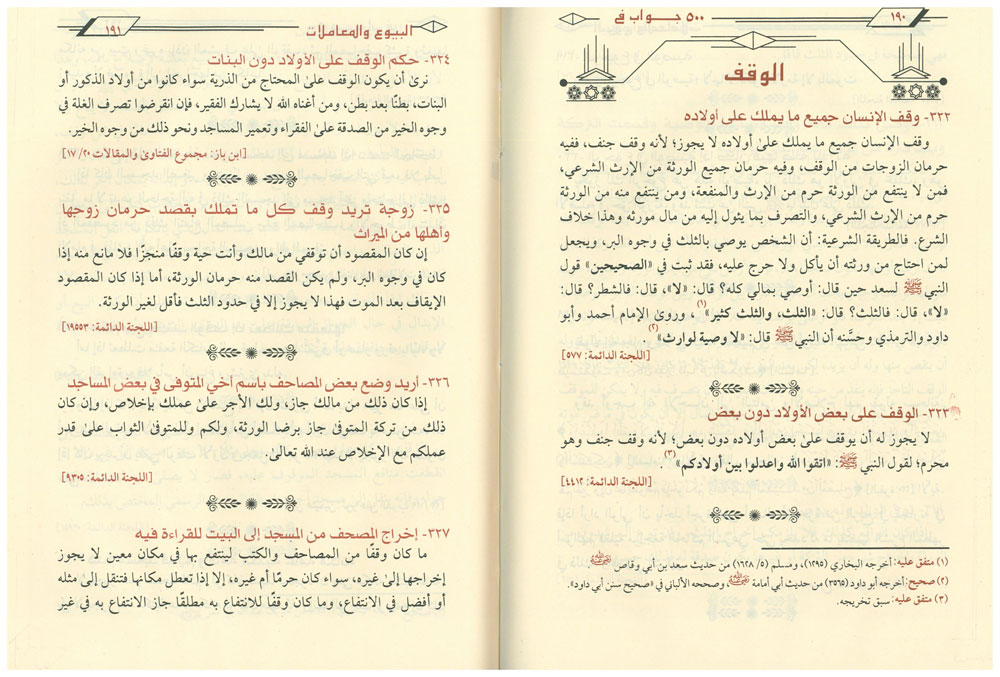 ١٩٠
٥٠٠ جواب في
الوقف
٣٢٢- وقف الإنسان جميع ما يملك على أولاده
وقف الإنسان جميع ما يملك علىٰ أولاده لا يجوز؛ لأنه وقف جنف، ففيه
حرمان الزوجات من الوقف، وفيه حرمان جميع الورثة من الإرث الشرعي،
فمن لا ينتفع من الورثة حرم من الإرث والمنفعة، ومن ينتفع منه من الورثة
حرم من الإرث الشرعي، والتصرف بما يئول إليه من مال مورثه وهذا خلاف
الشرع. فالطريقة الشرعية: أن الشخص يوصي بالثلث في وجوه البر، ويجعل
لمن احتاج من ورثته أن يأكل ولا حرج عليه، فقد ثبت في «الصحيحين» قول
النبي ﷺ لسعد حين قال: أوصي بمالي كله؟ قال: «لا»، قال: فالشطر؟ قال:
«لا»، قال: فالثلث؟ قال: «الثلث، والثلث كثير»(١)، وروىٰ الإمام أحمد وأبو
داود والترمذي وحسَّنه أن النبي ﷺ قال: «لا وصية لوارث»(٢).
[اللجنة الدائمة: ٥٧٧]
٣٢٣- الوقف على بعض الأولاد دون بعض
لا يجوز له أن يوقف علىٰ بعض أولاده دون بعض؛ لأنه وقف جنف وهو
محرم؛ لقول النبي ﷺ: «اتقوا الله واعدلوا بين أولادكم»(٣)
[اللجنة الدائمة: ٤٤١٢]
(١) متفق عليه: أخرجه البخاري (١٢٩٥)، ومسلم (٥/ ١٦٢٨) من حديث سعد بن أبي وقاص رضي الله عنه.
(٢) صحيح: أخرجه أبو داود (٣٥٦٥) من حديث أبي أمامة رضي الله عنه وصححه الألباني في «صحيح سنن أبي داود».
(٣) متفق عليه: سبق تخريجه.
البيوع والمعاملات
١٩١
٣٢٤- حكم الوقف على الأولاد دون البنات
نرىٰ أن يكون الوقف علىٰ المحتاج من الذرية سواء كانوا من أولاد الذكور أو
البنات، بطنًا بعد بطن، ومن أغناه الله لا يشارك الفقير، فإن انقرضوا تصرف الغلة في
وجوه الخير من الصدقة علىٰ الفقراء وتعمير المساجد ونحو ذلك من وجوه الخير.
[ابن باز: مجموع الفتاوى والمقالات ٢٠/ ١٧]
٣٢٥- زوجة تريد وقف كل ما تملك بقصد حرمان زوجها
وأهلها من الميراث
إن كان المقصود أن توقفي من مالك وأنت حية وقفًا منجزًا فلا مانع منه إذا
كان في وجوه البر، ولم يكن القصد منه حرمان الورثة، أما إذا كان المقصود
الإيقاف بعد الموت فهذا لا يجوز إلا في حدود الثلث فأقل لغير الورثة.
[اللجنة الدائمة: ١٩٥٥٣]
٣٢٦- أريد وضع بعض المصاحف باسم أخي المتوفى في بعض المساجد
إذا كان ذلك من مالك جاز، ولك الأجر علىٰ عملك بإخلاص، وإن كان
ذلك من تركة المتوفىٰ جاز برضا الورثة، ولكم وللمتوفىٰ الثواب علىٰ قدر
عملكم مع الإخلاص عند الله تعالىٰ.
[اللجنة الدائمة: ٩٣٠٥]
٣٢٧- إخراج المصحف من المسجد إلى البيت للقراءة فيه
ما كان وقفًا من المصاحف والكتب لينتفع بها في مكان معين لا يجوز
إخراجها إلىٰ غيره، سواء كان حرمًا أم غيره، إلا إذا تعطل مكانها فتنتقل إلىٰ مثله
أو أفضل في الانتفاع، وما كان وقفًا للانتفاع به مطلقًا جاز الانتفاع به في غير